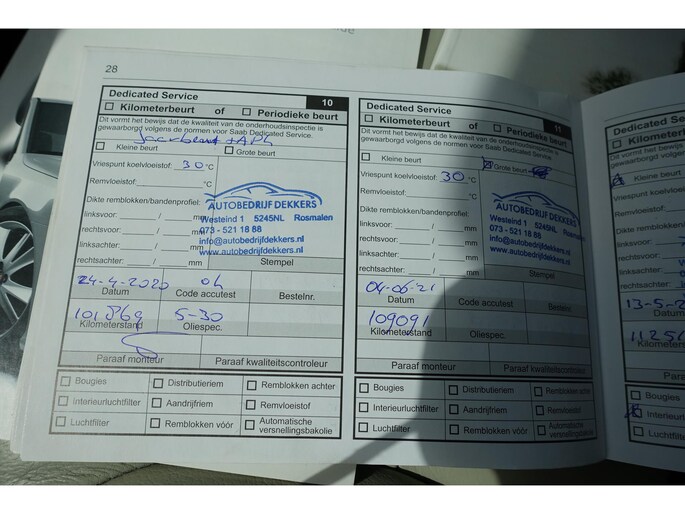 28
Dedicated Service
10
Kilometerbeurt of Periodieke beurt
Dit vormt het bewijs dat de kwaliteit van de onderhoudsinspectie is
gewaarborgd volgens de normen voor Saab Dedicated Service.
Jaarbeurt + APK
Kleine beurt Grote beurt
Vriespunt koelvloeistof: 30 °C
Remvloeistof: °C
Dikte remblokken/bandenprofiel:
linksvoor: / mm
rechtsvoor: / mm
linksachter: / mm
rechtsachter: / mm
AUTOBEDRIJF DEKKERS
Westeind 1 5245NL Rosmalen
073 - 521 18 88
info@autobedrijfdekkers.nl
www.autobedrijfdekkers.nl
Stempel
24-4-2020 oh
Datum Code accutest Bestelnr.
101869 5-30
Kilometerstand Oliespec.
Paraaf monteur Paraaf kwaliteitscontroleur
Bougies Distributieriem Remblokken achter
Interieurluchtfilter Aandrijfriem Remvloeistof
Luchtfilter Remblokken vóór Automatische
versnellingsbakolie
Dedicated Service
11
Kilometerbeurt of Periodieke beurt
Dit vormt het bewijs dat de kwaliteit van de onderhoudsinspectie is
gewaarborgd volgens de normen voor Saab Dedicated Service.
Kleine beurt Grote beurt
Vriespunt koelvloeistof: 30 °C
Remvloeistof: °C
Dikte remblokken/bandenprofiel:
linksvoor: / mm
rechtsvoor: / mm
linksachter: / mm
rechtsachter: / mm
AUTOBEDRIJF DEKKERS
Westeind 1 5245NL Rosmalen
073 - 521 18 88
info@autobedrijfdekkers.nl
www.autobedrijfdekkers.nl
Stempel
04-06-21
Datum Code accutest Bestelnr.
109091
Kilometerstand Oliespec.
Paraaf monteur Paraaf kwaliteitscontroleur
Bougies Distributieriem Remblokken achter
Interieurluchtfilter Aandrijfriem Remvloeistof
Luchtfilter Remblokken vóór Automatische
versnellingsbakolie
Dedicated Serv
Kilometerbe
Dit vormt het bewijs
gewaarborgd volgens
Kleine beurt
Vriespunt koelvloei
Remvloeistof:
Dikte remblokken
linksvoor:
rechtsvoor:
linksachter:
rechtsachter:
13-5-2
Datum
Kilometerstand
Paraaf m
Bougies
Interieurl
Luchtfilter